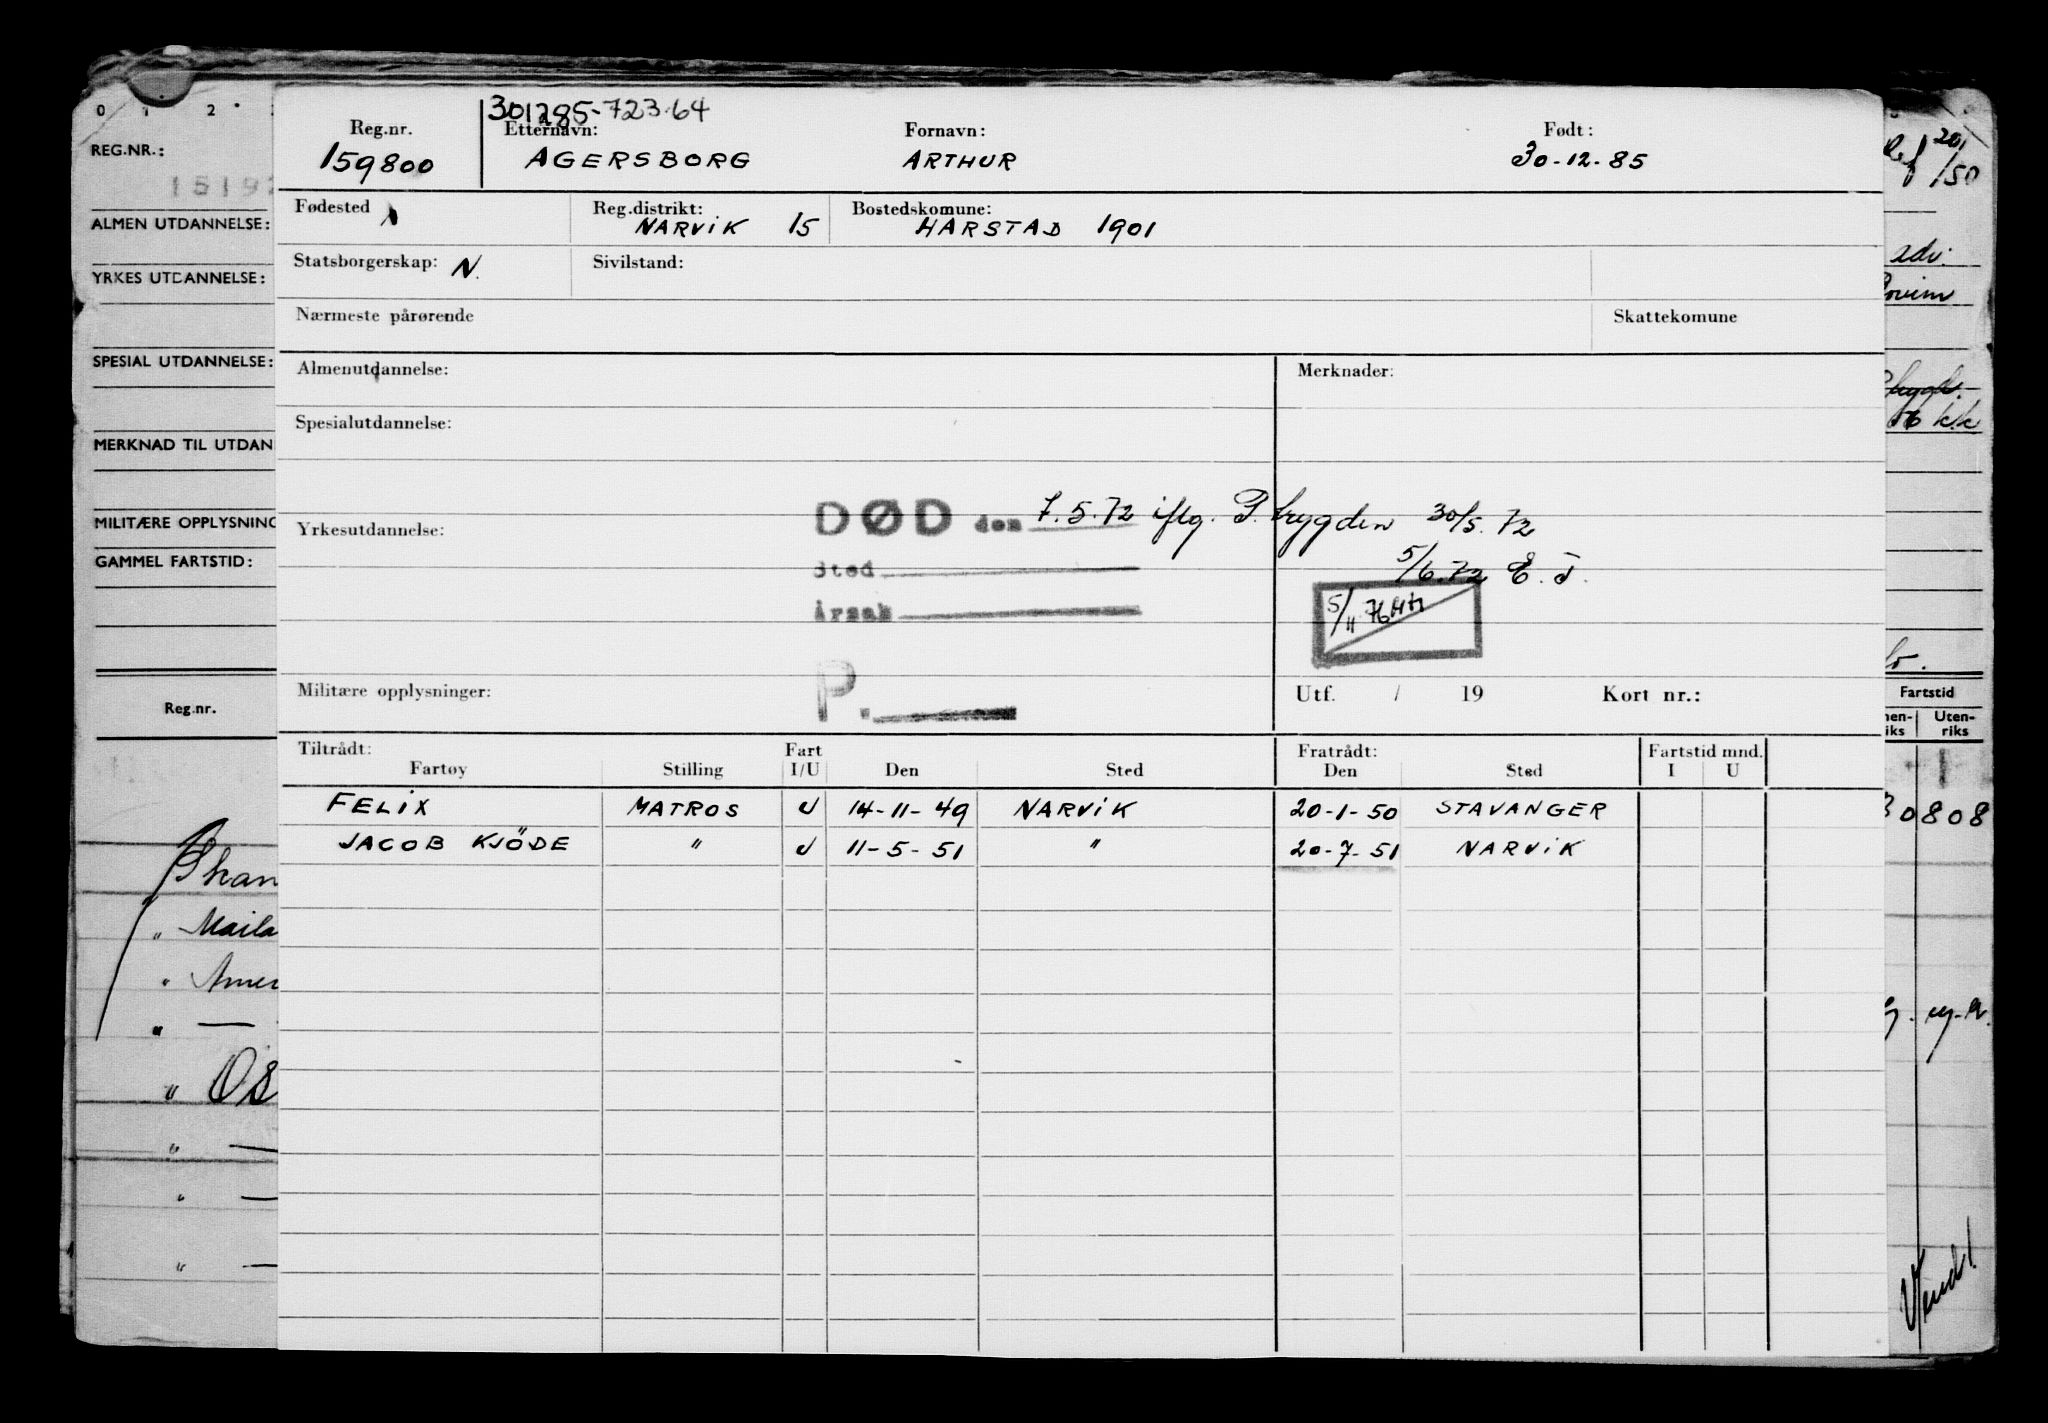 301285-723.64
Reg.nr. Etternavn: Fornavn: Født:
159800 AGERSBORG ARTHUR 30-12-85
Fødested Reg.distrikt: Bostedskomune:
NARVIK 15 HARSTAD 1901
Statsborgerskap: N. Sivilstand:
Nærmeste pårørende Skattekomune
Almenutdannelse: Merknader:
Spesialutdannelse:
DØD den 7.5.72 iflg. P. trygden 30/5.72
Yrkesutdannelse:
Sted 5/6.72 E. J.
Årsak 5/11
Militære opplysninger: P. Utf. / 19 Kort nr.:
Tiltrådt: Fart Fratrådt: Fartstid mnd.
Fartøy Stilling I/U Den Sted Den Sted I U
FELIX MATROS U 14-11-49 NARVIK 20-1-50 STAVANGER
JACOB KJÖDE " U 11-5-51 " 20-7-51 NARVIK
0 1 2
REG.NR.:
ALMEN UTDANNELSE:
YRKES UTDANNELSE:
SPESIAL UTDANNELSE:
MERKNAD TIL UTDAN
MILITÆRE OPPLYSNING
GAMMEL FARTSTID:
Reg.nr.
" Maila
" Amer
" —
" Os
" —
" —
" —
/50
Fartstid
nen- Uten-
iks riks
30808
Vend!